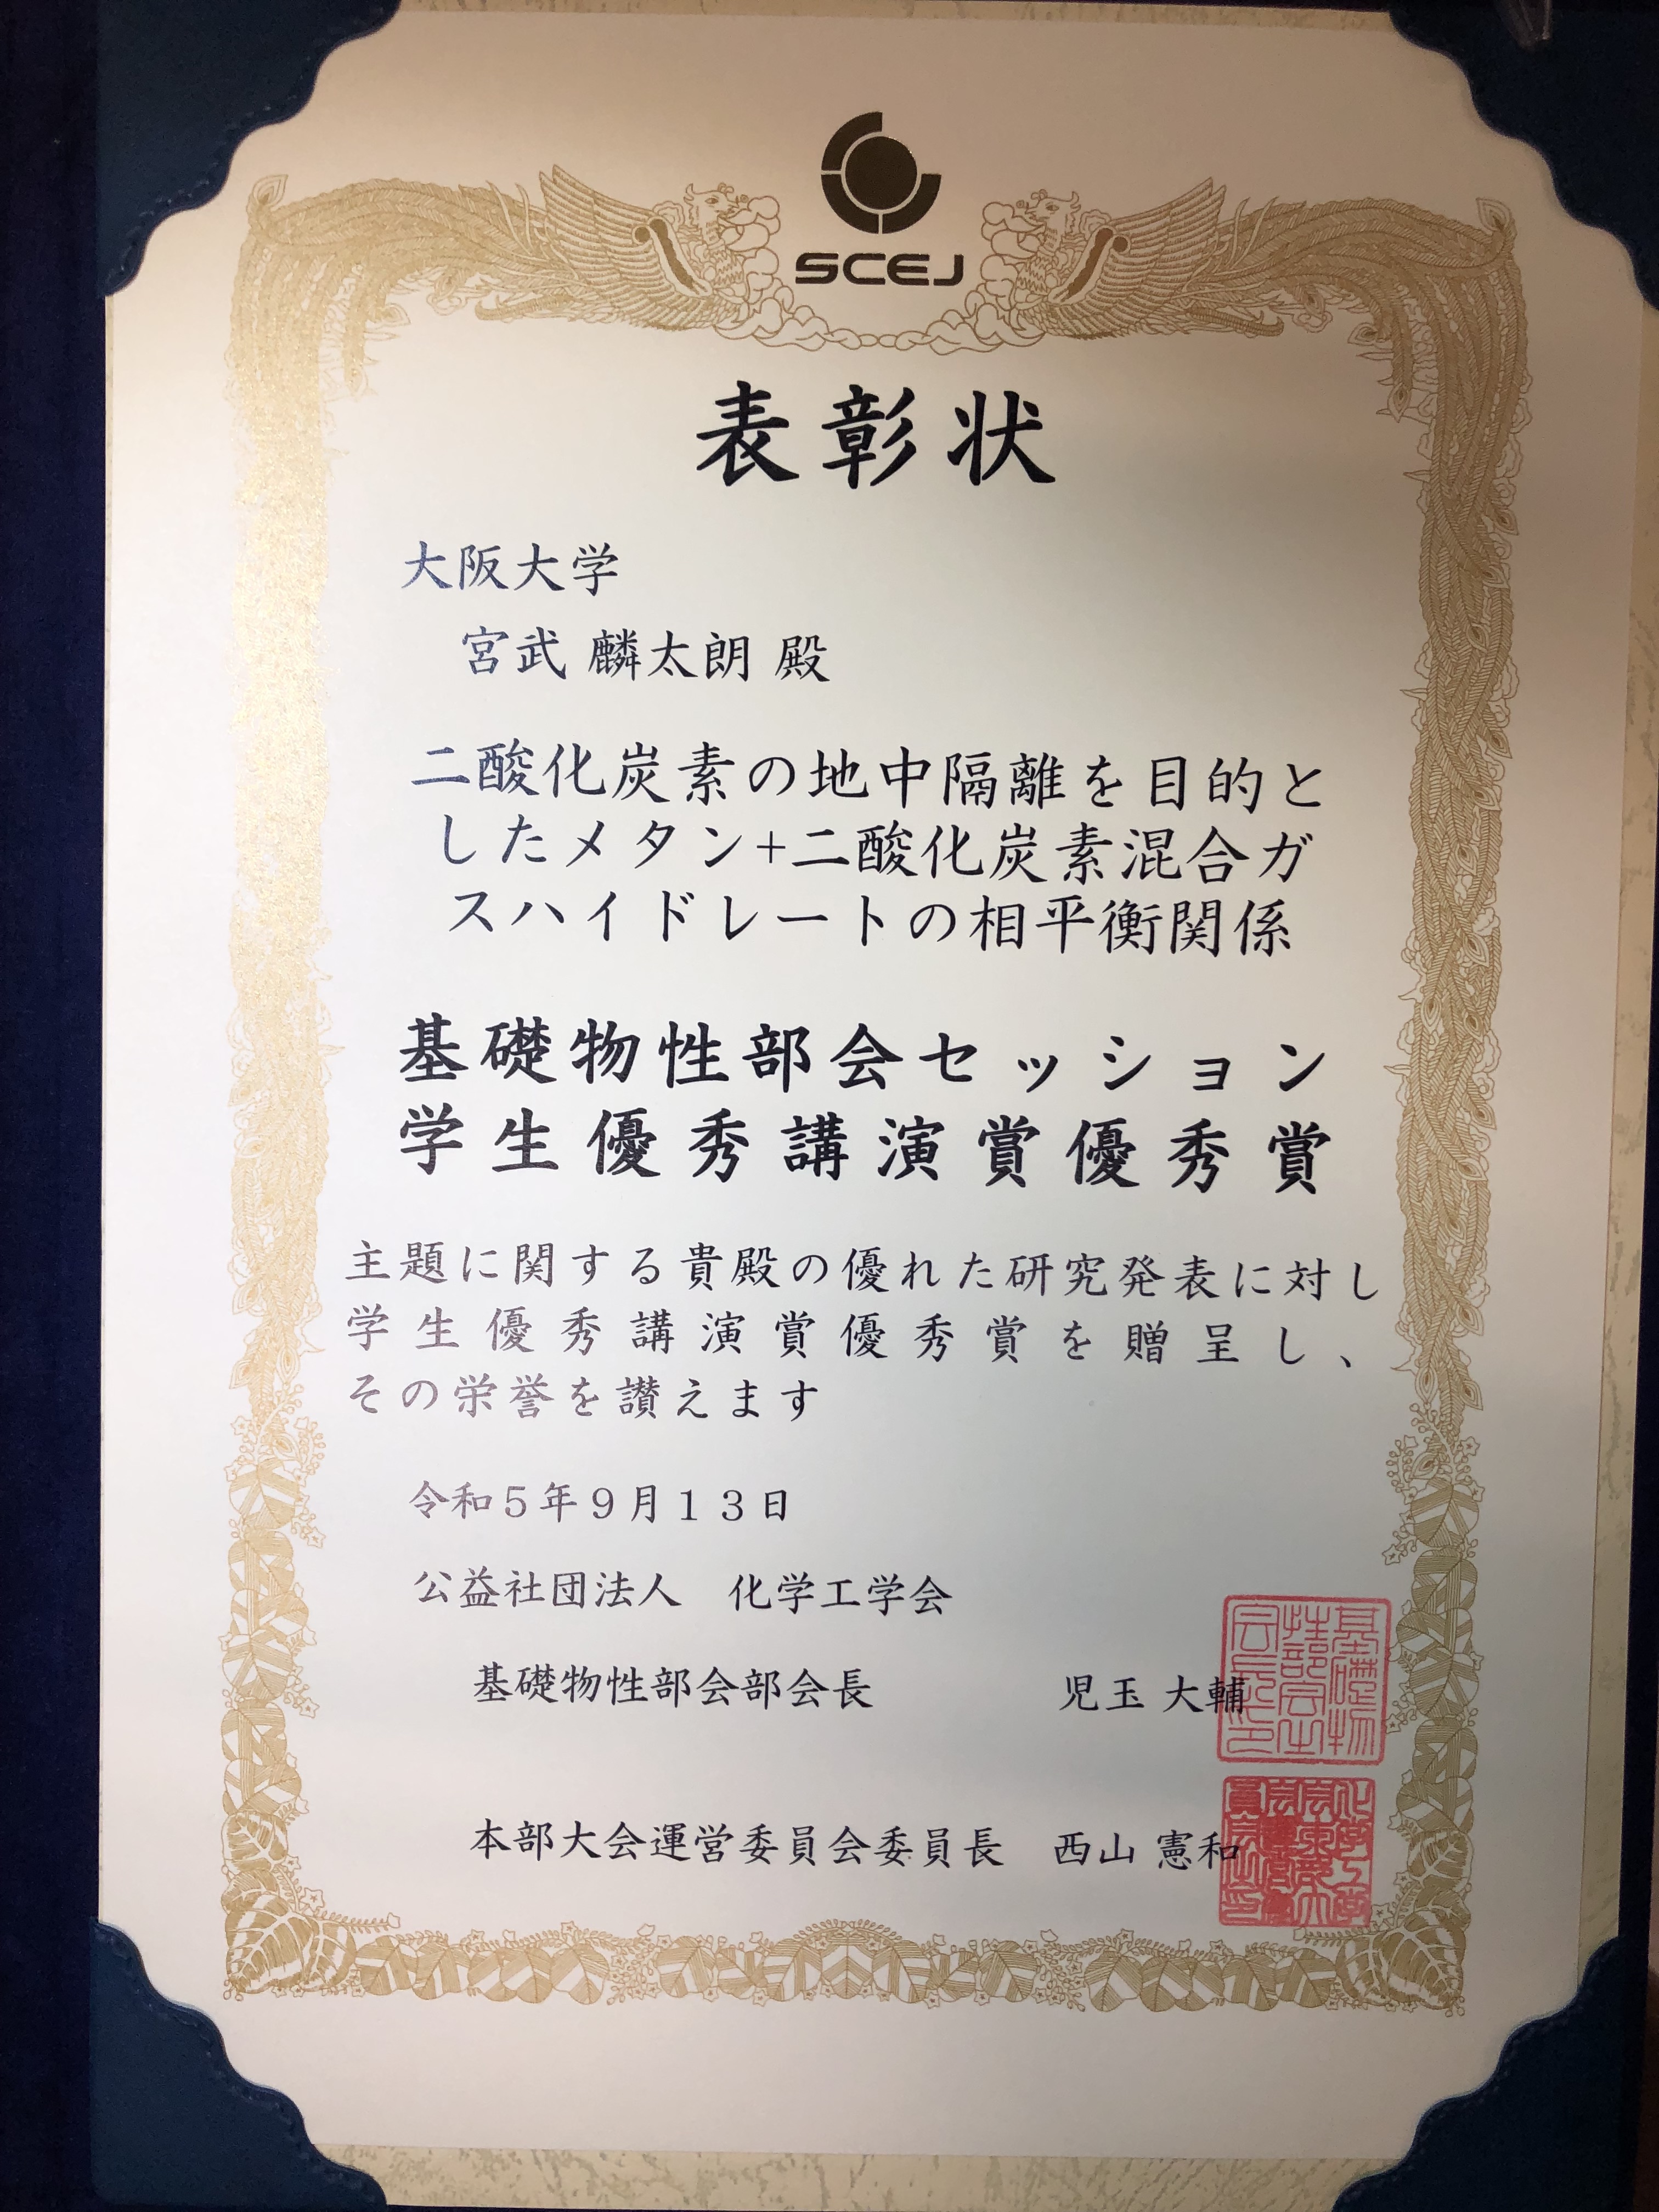 SCEJ
表彰状
大阪大学
宮武 麟太朗 殿
二酸化炭素の地中隔離を目的と
したメタン+二酸化炭素混合ガ
スハイドレートの相平衡関係
基礎物性部会セッション
学生優秀講演賞優秀賞
主題に関する貴殿の優れた研究発表に対し
学生優秀講演賞優秀賞を贈呈し、
その栄誉を讃えます
令和5年9月13日
公益社団法人 化学工学会
基礎物性部会部会長 児玉 大輔
基礎物
性部会
会長印
本部大会運営委員会委員長 西山 憲和